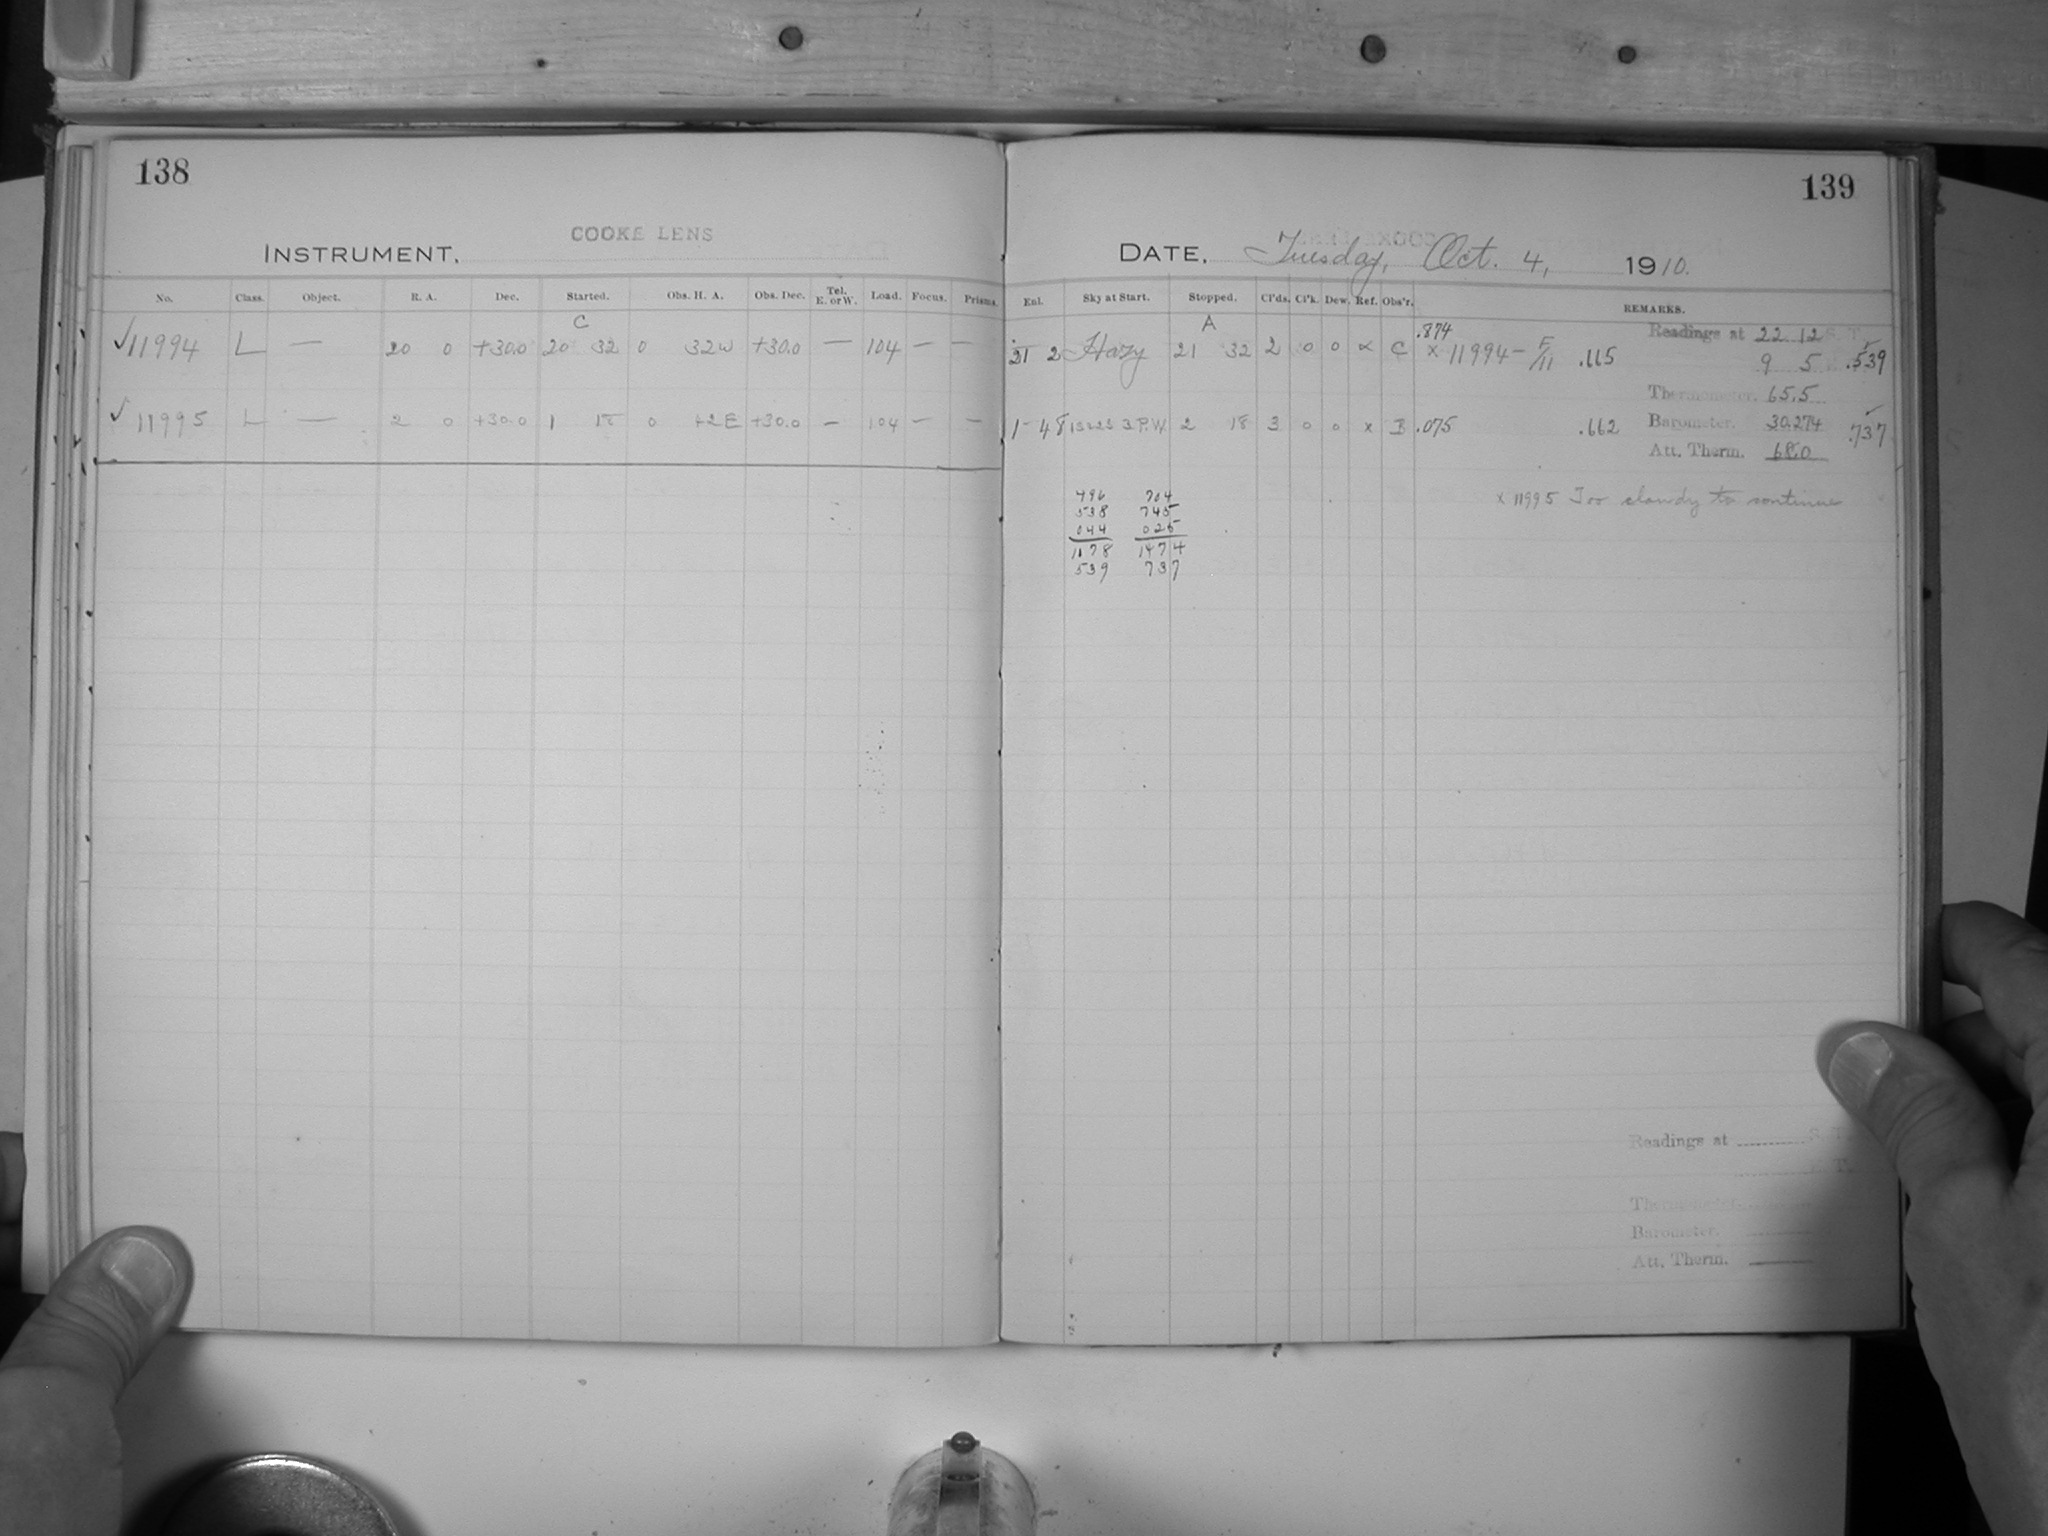 138
COOKE LENS
INSTRUMENT.
No. Class. Object. R. A. Dec. Started. Obs. H. A. Obs. Dec. Tel. E. or W. Load. Focus. Prisms.
C
✓11994 L — 20 0 +30.0 20 32 0 32W +30.0 — 104 — —
✓11995 L — 2 0 +30.0 1 0 42E +30.0 — 104 — —
139
DATE, Tuesday, Oct. 4, 1910.
Enl. Sky at Start. Stopped. Cl'ds. Cl'k. Dew. Ref. Obs'r. REMARKS.
A
.874 Readings at 22 12 S. T.
21 2 Hazy 21 32 2 0 0 x C x 11994 - F/11 .115 9 5 .539
Thermometer. 65.5
1-48 2 18 3 0 0 x B .075 .662 Barometer. 30.274 .737
Att. Therm.
x 11995 Too cloudy to continue
496 704
538 745
044 025
1078 1474
539 737
Readings at S. T.
Thermometer.
Barometer.
Att. Therm.